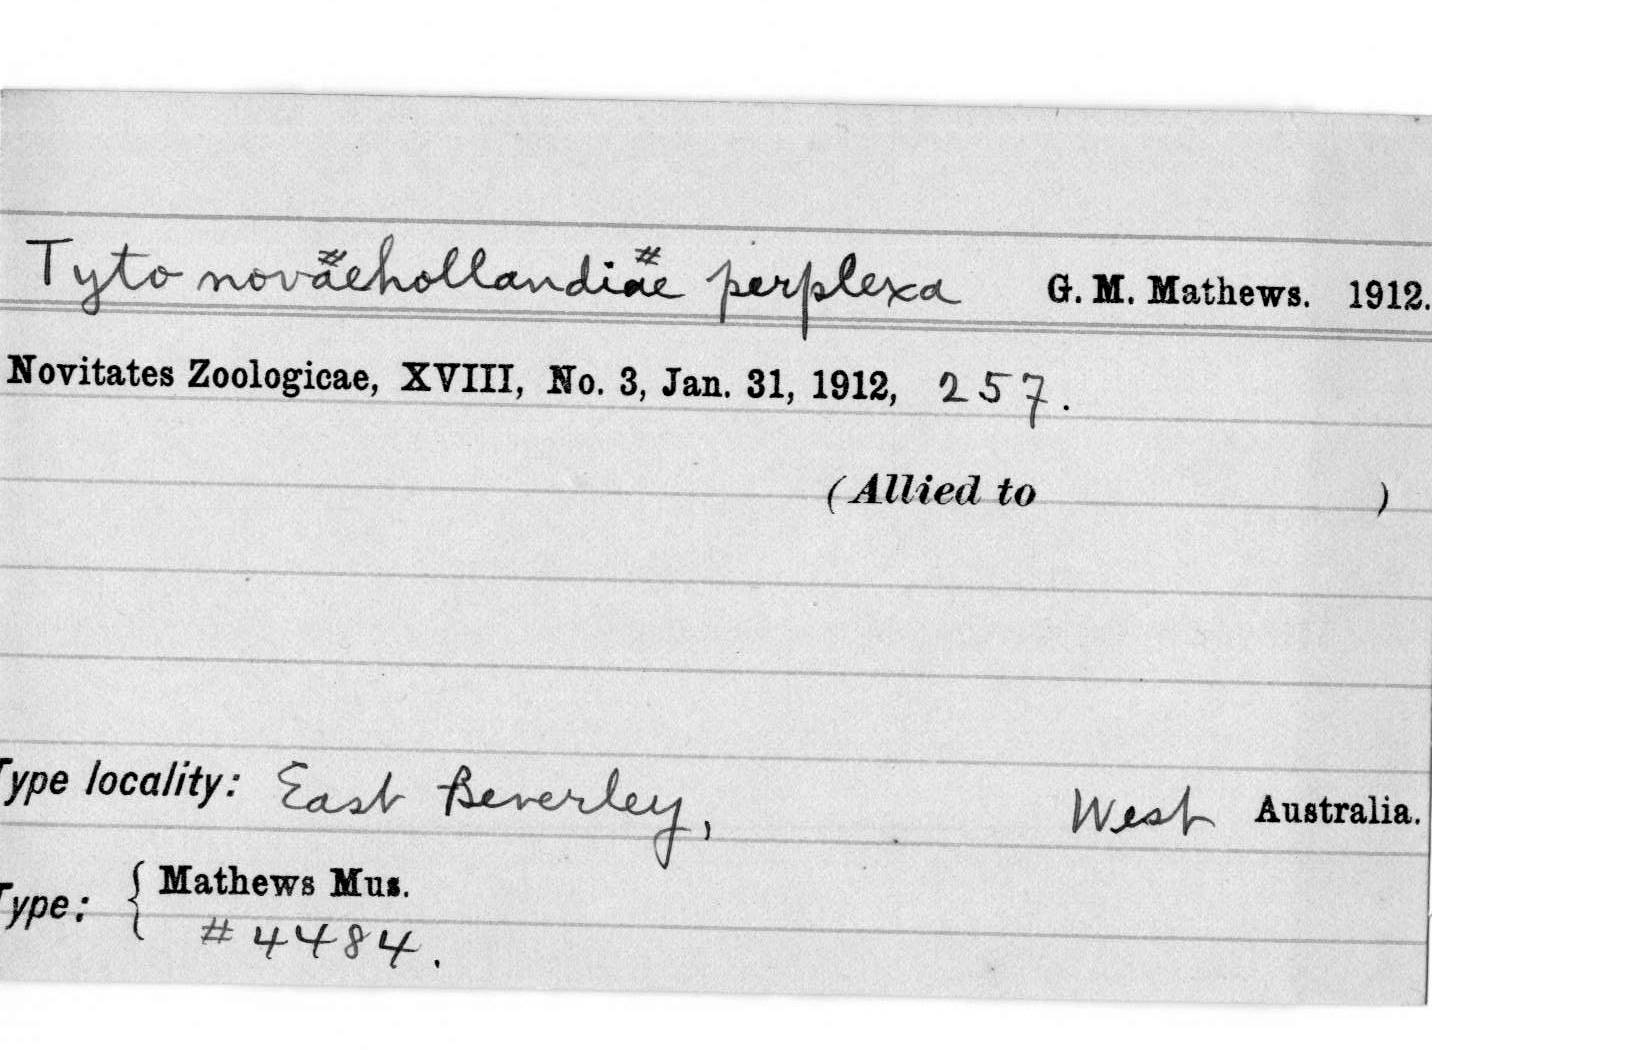 Tyto novæhollandiæ perplexa G. M. Mathews. 1912.
Novitates Zoologicae, XVIII, No. 3, Jan. 31, 1912, 257.
(Allied to )
Type locality: East Beverley, West Australia.
Type: { Mathews Mus.
# 4484.